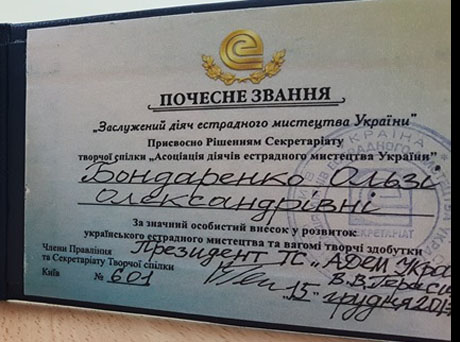 ПОЧЕСНЕ ЗВАННЯ
„Заслужений діяч естрадного мистецтва України”
Присвоєно Рішенням Секретаріату
творчої спілки „Асоціація діячів естрадного мистецтва України”
Бондаренко Ользі
Олександрівні
За значний особистий внесок у розвиток
українського естрадного мистецтва та вагомі творчі здобутки
Члени Правління
та Секретаріату Творчої спілки
Президент ТС „АДЕМ
В.В.
Київ № 601
„15” грудня
УКРАЇНА
СЕКРЕТАРІАТ